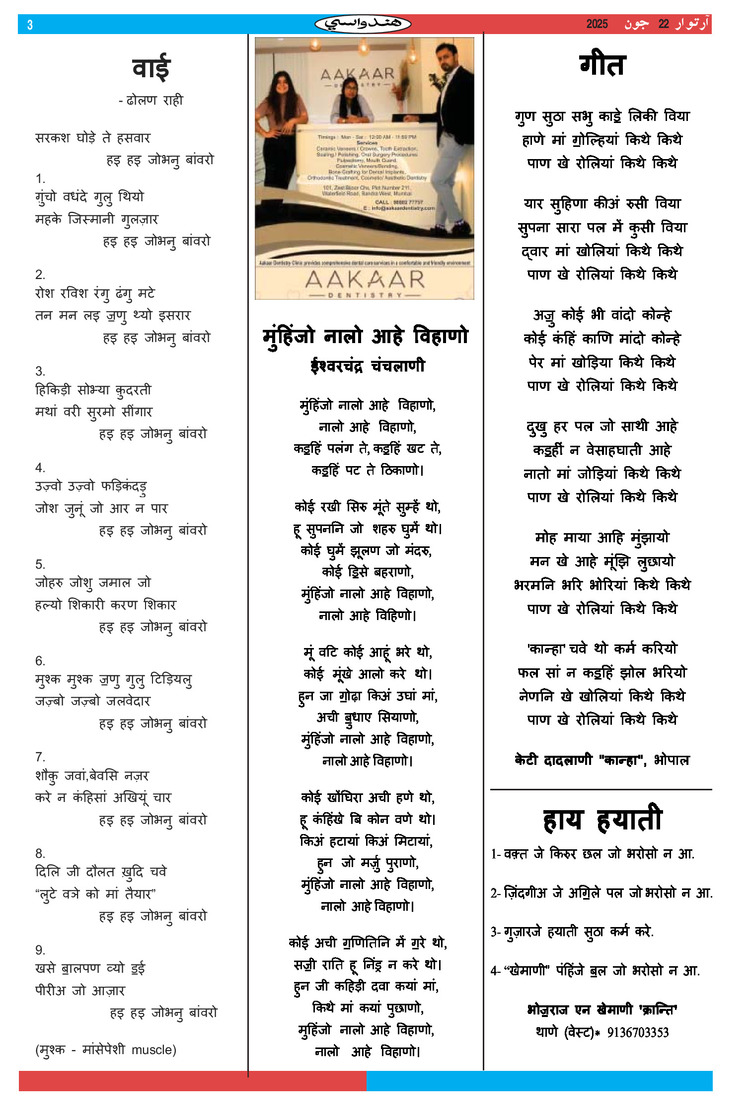 3
هندواسي
آرتوار 22 جون 2025
वाई
- ढोलण राही
सरकश घोड़े ते हसवार
हइ हइ जोभनु बांवरो
1.
गुंचो वधंदे गुलु थियो
महके जिस्मानी गुलज़ार
हइ हइ जोभनु बांवरो
2.
रोश रविश रंगु ढंगु मटे
तन मन लइ ॼणु थ्यो इसरार
हइ हइ जोभनु बांवरो
3.
हिकिड़ी सोभ्या कुदरती
मथां वरी सुरमो सींगार
हइ हइ जोभनु बांवरो
4.
उज़्वो उज़्वो फड़िकंदड़ु
जोश जुनूं जो आर न पार
हइ हइ जोभनु बांवरो
5.
जोहरु जोशु जमाल जो
हल्यो शिकारी करण शिकार
हइ हइ जोभनु बांवरो
6.
मुश्क मुश्क ॼणु गुलु टिड़ियलु
जज़्बो जज़्बो जलवेदार
हइ हइ जोभनु बांवरो
7.
शौकु जवां,बेवसि नज़र
करे न कंहिसां अखियूं चार
हइ हइ जोभनु बांवरो
8.
दिलि जी दौलत ख़ुदि चवे
“लुटे वञे को मां तैयार”
हइ हइ जोभनु बांवरो
9.
खसे ॿालपण व्यो ॾई
पीरीअ जो आज़ार
हइ हइ जोभनु बांवरो
(मुश्क - मांसेपेशी muscle)
AAKAAR
DENTISTRY
Timings : Mon - Sat : 12:00 AM - 11:52 PM
Services
Ceramic Veneers / Crowns, Tooth Extraction,
Scaling / Polishing, Oral Surgery Procedures
Pulpectomy, Mouth Guard,
Cosmetic Veneers/Bonding,
Bone Grafting for Dental Implants,
Orthodontic Treatment, Cosmetic/ Aesthetic Dentistry
101, Zeel Bizcor Chs, Plot Number 211,
Waterfield Road, Bandra West, Mumbai
CALL : 98902 77737
E : info@aakaardentistry.com
Aakaar Dentistry Clinic provides comprehensive dental care services in a comfortable and friendly environment
AAKAAR
DENTISTRY
मुंहिंजो नालो आहे विहाणो
ईश्वरचंद्र चंचलाणी
मुंहिंजो नालो आहे विहाणो,
नालो आहे विहाणो,
कॾहिं पलंग ते, कॾहिं खट ते,
कॾहिं पट ते ठिकाणो।
कोई रखी सिरु मूंते सुम्हें थो,
हू सुपननि जो शहरु घुमें थो।
कोई घुमें झूलण जो मंदरु,
कोई ॾिसे बहराणो,
मुंहिंजो नालो आहे विहाणो,
नालो आहे विहिणो।
मूं वटि कोई आहूं भरे थो,
कोई मूंखे आलो करे थो।
हुन जा ॻोढ़ा किअं उघां मां,
अची ॿुधाए सियाणो,
मुंहिंजो नालो आहे विहाणो,
नालो आहे विहाणो।
कोई खोंघिरा अची हणे थो,
हू कंहिंखे बि कोन वणे थो।
किअं हटायां किअं मिटायां,
हुन जो मर्ज़ु पुराणो,
मुंहिंजो नालो आहे विहाणो,
नालो आहे विहाणो।
कोई अची ॻणितिनि में ॻरे थो,
सॼी राति हू निंड्र न करे थो।
हुन जी कहिड़ी दवा कयां मां,
किथे मां कयां पुछाणो,
मुहिंजो नालो आहे विहाणो,
नालो आहे विहाणो।
गीत
गुण सुठा सभु काॾे लिकी विया
हाणे मां ॻोल्हियां किथे किथे
पाण खे रोलियां किथे किथे
यार सुहिणा कीअं रुसी विया
सुपना सारा पल में कुसी विया
द्वार मां खोलियां किथे किथे
पाण खे रोलियां किथे किथे
अॼु कोई भी वांदो कोन्हे
कोई कंहिं काणि मांदो कोन्हे
पेर मां खोड़िया किथे किथे
पाण खे रोलियां किथे किथे
दुखु हर पल जो साथी आहे
कॾहीं न वेसाहघाती आहे
नातो मां जोड़ियां किथे किथे
पाण खे रोलियां किथे किथे
मोह माया आहि मुंझायो
मन खे आहे मूंझि लुछायो
भरमनि भरि भोरियां किथे किथे
पाण खे रोलियां किथे किथे
'कान्हा' चवे थो कर्म करियो
फल सां न कॾहिं झोल भरियो
नेणनि खे खोलियां किथे किथे
पाण खे रोलियां किथे किथे
केटी दादलाणी "कान्हा", भोपाल
हाय हयाती
1- वक़्त जे किरुर छल जो भरोसो न आ.
2- ज़िंदगीअ जे अॻिले पल जो भरोसो न आ.
3- गुज़ारजे हयाती सुठा कर्म करे.
4- “खेमाणी” पंहिंजे ॿल जो भरोसो न आ.
भोजुराज एन खेमाणी 'क्रान्ति'
थाणे (वेस्ट)* 9136703353